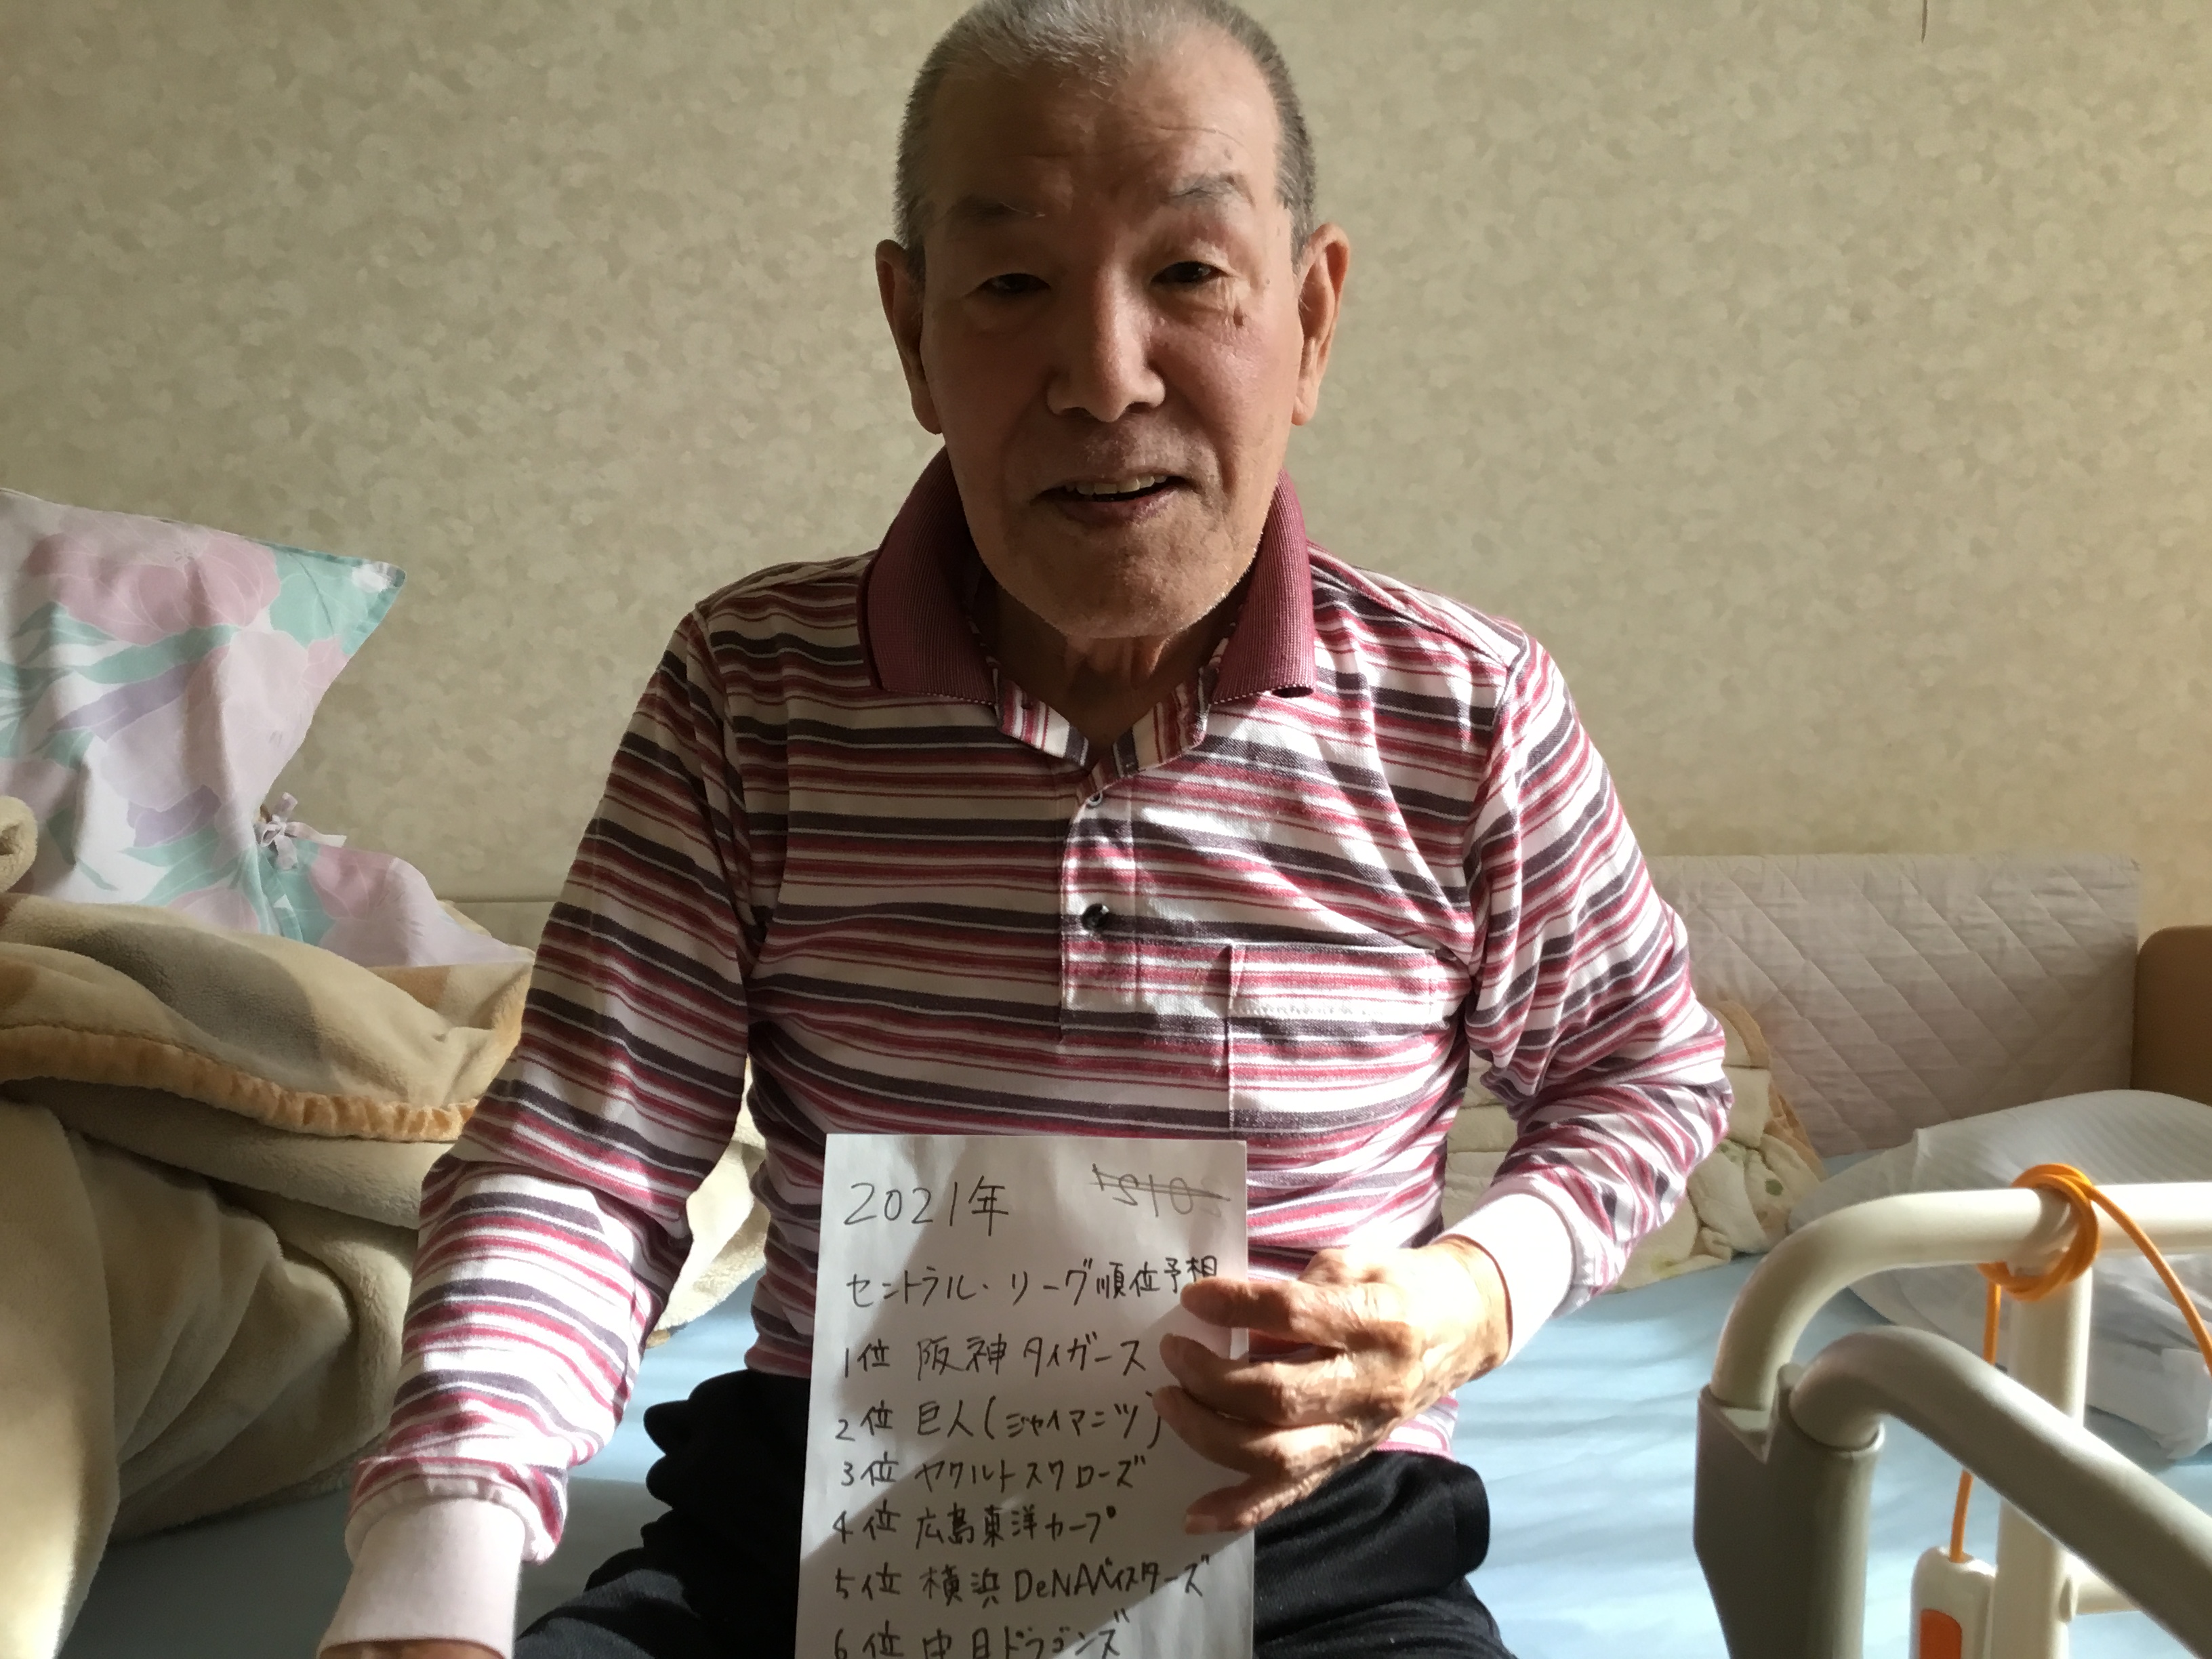 2021年
セントラル・リーグ順位予想
1位 阪神タイガース
2位 巨人(ジャイアンツ)
3位 ヤクルトスワローズ
4位 広島東洋カープ
5位 横浜DeNAベイスターズ
6位 中日ドラゴンズ